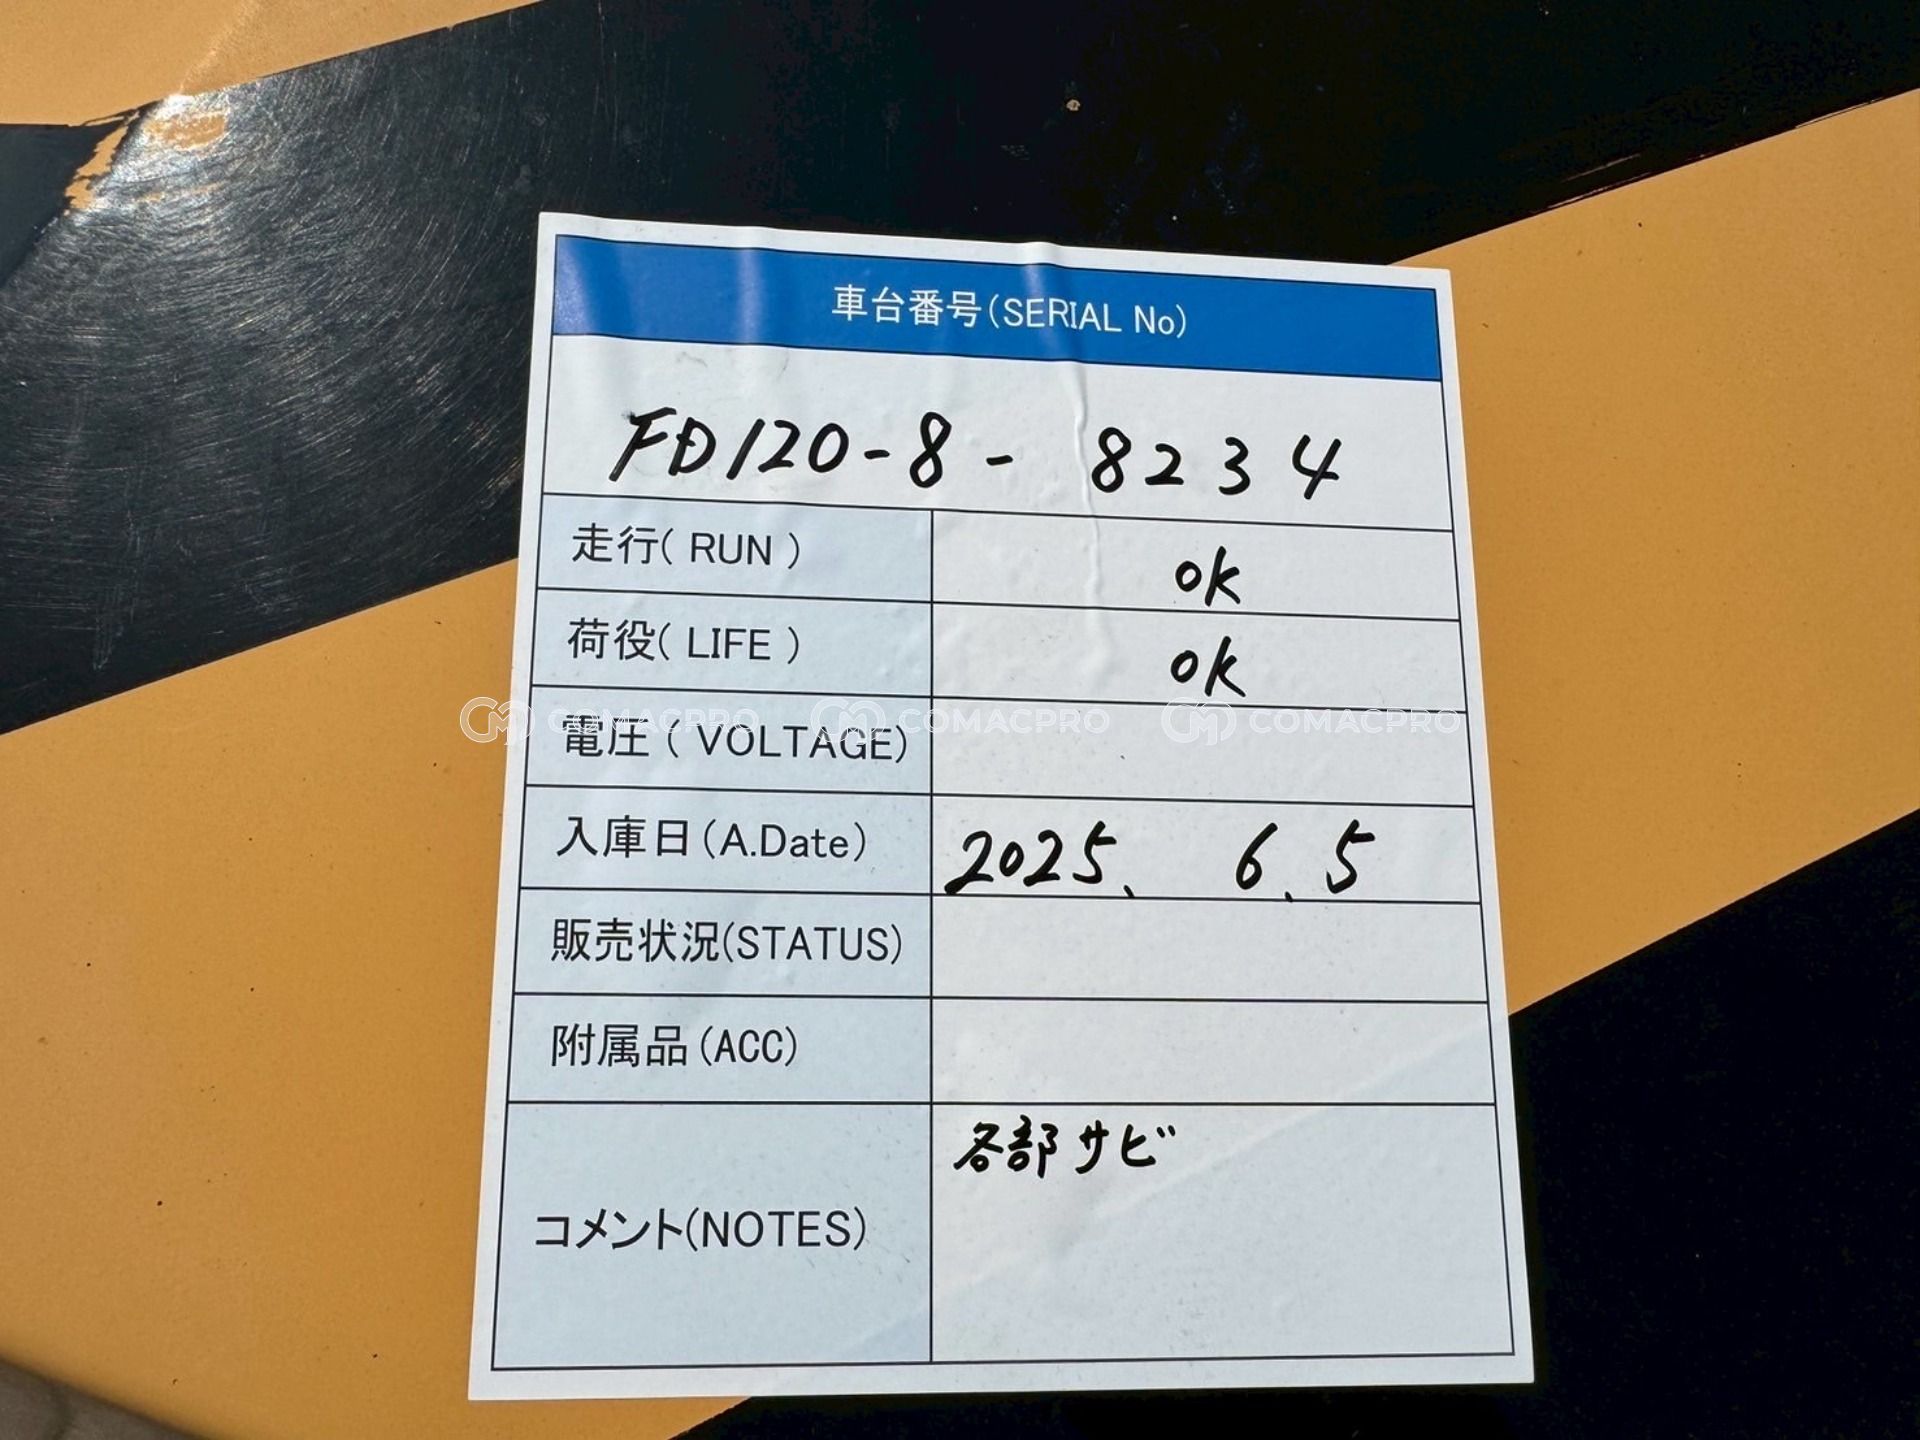 車台番号(SERIAL No)
FD120-8- 8234
走行( RUN ) ok
荷役( LIFE ) ok
電圧( VOLTAGE)
COMACPRO COMACPRO COMACPRO
入庫日(A.Date) 2025. 6.5
販売状況(STATUS)
附属品(ACC)
コメント(NOTES) 各部サビ